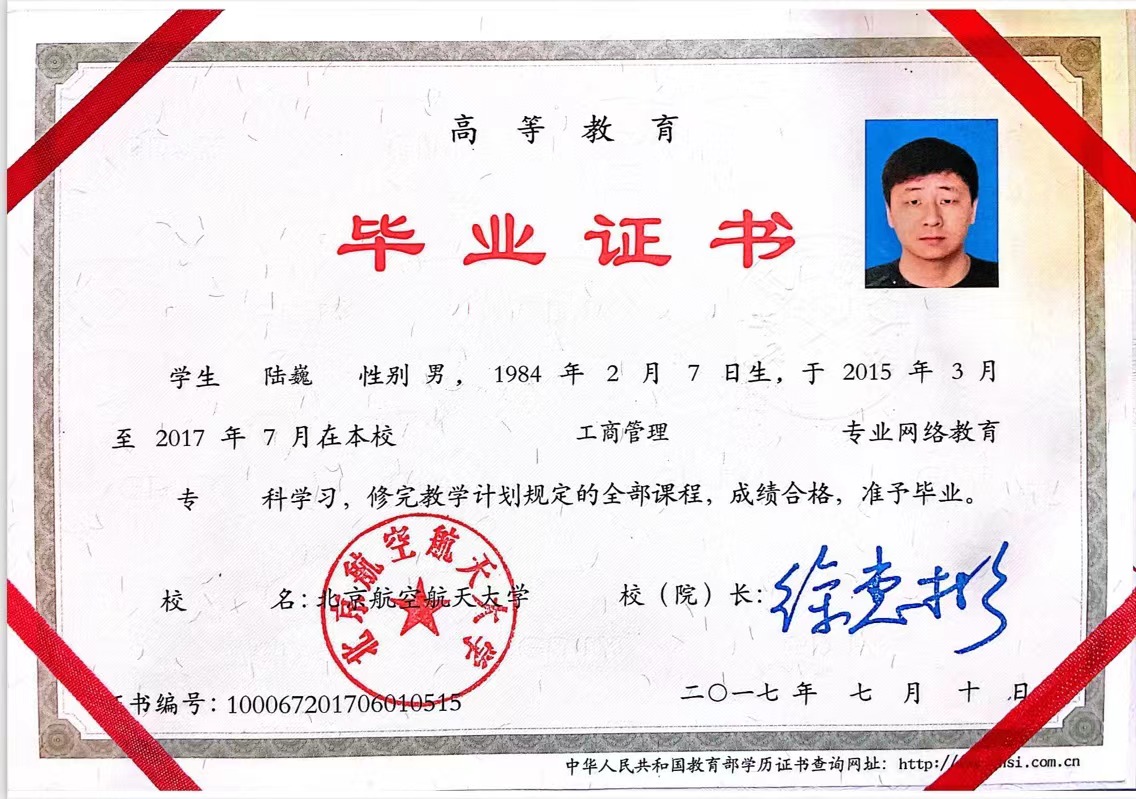 高等教育
毕业证书
学生 陆巍 性别 男，1984 年 2 月 7 日生，于 2015 年 3 月
至 2017 年 7 月在本校 工商管理 专业网络教育
专 科学习，修完教学计划规定的全部课程，成绩合格，准予毕业。
北京航空航天大学
校 名：北京航空航天大学 校（院）长：徐惠彬
书编号：100067201706010515 二〇一七年 七 月 十 日
中华人民共和国教育部学历证书查询网址：http://si.com.cn